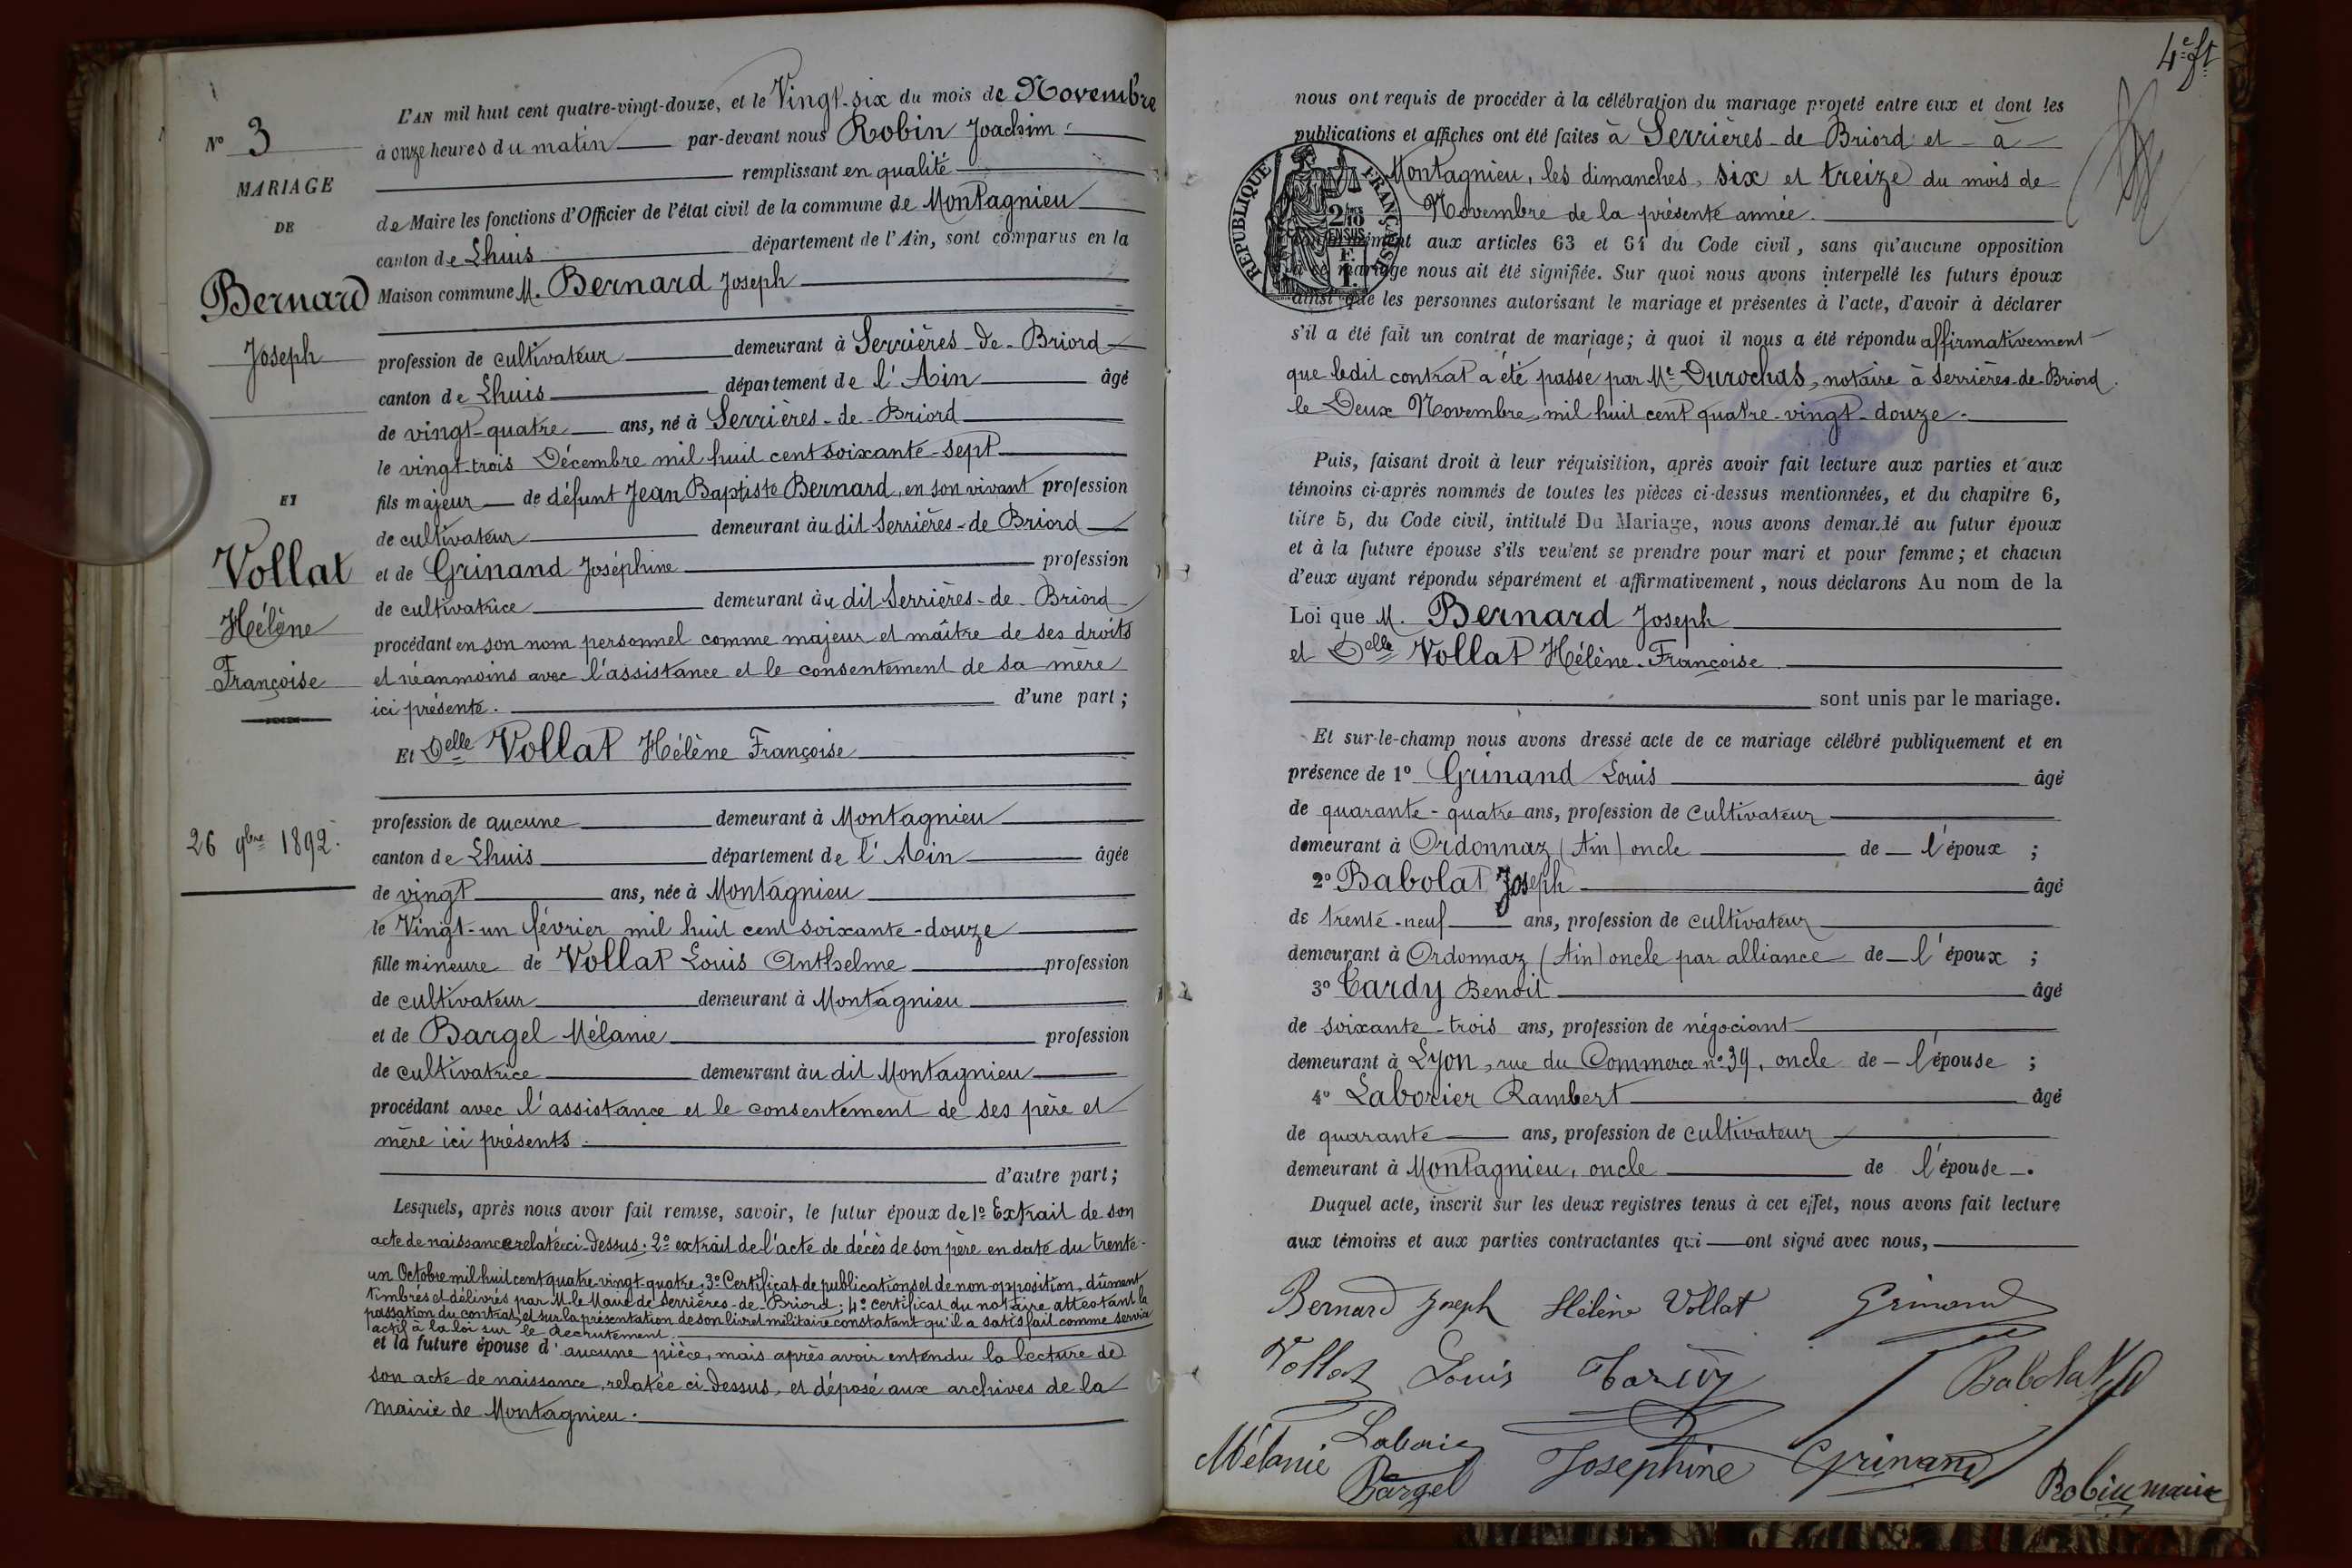 N° 3
MARIAGE
DE
Bernard
Joseph
ET
Vollat
Hélène
Françoise
26 9bre 1892.
L'AN mil huit cent quatre-vingt-douze, et le Vingt-six du mois de Novembre
à onze heures du matin par-devant nous Robin Joachim
remplissant en qualité
de Maire les fonctions d'Officier de l'état civil de la commune de Montagnieu
canton de Lhuis département de l'Ain, sont comparus en la
Maison commune M. Bernard Joseph
profession de cultivateur demeurant à Serrières-de-Briord
canton de Lhuis département de l'Ain âgé
de vingt-quatre ans, né à Serrières-de-Briord
le vingt-trois Décembre mil huit cent soixante-sept
fils majeur de défunt Jean Baptiste Bernard, en son vivant profession
de cultivateur demeurant àu dit Serrières-de Briord
et de Grinand Joséphine profession
de cultivatrice demeurant àu dit Serrières-de-Briord
procédant en son nom personnel comme majeur et maître de ses droits
et néanmoins avec l'assistance et le consentement de sa mère
ici présente. d'une part;
Et Delle Vollat Hélène Françoise
profession de aucune demeurant à Montagnieu
canton de Lhuis département de l'Ain âgée
de vingt ans, née à Montagnieu
le Vingt-un février mil huit cent soixante-douze
fille mineure de Vollat Louis Anthelme profession
de cultivateur demeurant à Montagnieu
et de Bargel Mélanie profession
de cultivatrice demeurant àu dit Montagnieu
procédant avec l'assistance et le consentement de ses père et
mère ici présents.
d'autre part;
Lesquels, après nous avoir fait remise, savoir, le futur époux de 1° Extrait de son
acte de naissance relatée ci-dessus; 2° extrait de l'acte de décès de son père en date du trente-
un Octobre mil huit cent quatre-vingt-quatre, 3° Certificat de publications et de non-opposition, dûment
timbrés et délivrés par M. le Maire de Serrières-de-Briord; 4° certificat du notaire attestant la
passation du contrat, et sur la présentation de son livret militaire constatant qu'il a satisfait comme service
actif à la loi sur le Recrutement.
et la future épouse d'aucune pièce, mais après avoir entendu la lecture de
son acte de naissance, relatée ci-dessus, et déposé aux archives de la
mairie de Montagnieu.
4e ft
nous ont requis de procéder à la célébration du mariage projeté entre eux et dont les
publications et affiches ont été faites à Serrières-de Briord et à
Montagnieu, les dimanches, six et treize du mois de
Novembre de la présente année.
RÉPUBLIQUE FRANÇAISE
conformément aux articles 63 et 64 du Code civil, sans qu'aucune opposition
à ce mariage nous ait été signifiée. Sur quoi nous avons interpellé les futurs époux
ainsi que les personnes autorisant le mariage et présentes à l'acte, d'avoir à déclarer
s'il a été fait un contrat de mariage; à quoi il nous a été répondu affirmativement
que ledit contrat a été passé par Me Durochas, notaire à Serrières-de-Briord.
le Deux Novembre, mil huit cent quatre-vingt-douze.
Puis, faisant droit à leur réquisition, après avoir fait lecture aux parties et aux
témoins ci-après nommés de toutes les pièces ci-dessus mentionnées, et du chapitre 6,
titre 5, du Code civil, intitulé Du Mariage, nous avons demandé au futur époux
et à la future épouse s'ils veulent se prendre pour mari et pour femme; et chacun
d'eux ayant répondu séparément et affirmativement, nous déclarons Au nom de la
Loi que M. Bernard Joseph
et Delle Vollat Hélène-Françoise
sont unis par le mariage.
Et sur-le-champ nous avons dressé acte de ce mariage célébré publiquement et en
présence de 1° Grinand Louis âgé
de quarante-quatre ans, profession de cultivateur
demeurant à Ordonnaz (Ain) oncle de l'époux;
2° Babolat Joseph âgé
de trente-neuf ans, profession de cultivateur
demeurant à Ordonnaz (Ain) oncle par alliance de l'époux;
3° Tardy Benoit âgé
de soixante-trois ans, profession de négociant
demeurant à Lyon, rue du Commerce n° 39, oncle de l'épouse;
4° Laborier Rambert âgé
de quarante ans, profession de cultivateur
demeurant à Montagnieu, oncle de l'épouse.
Duquel acte, inscrit sur les deux registres tenus à cet effet, nous avons fait lecture
aux témoins et aux parties contractantes qui ont signé avec nous,
Bernard Joseph Hélène Vollat Grinand
Vollat Louis Tardy Babolat
Laborier
Mélanie Bargel Josephine Grinand Robin maire